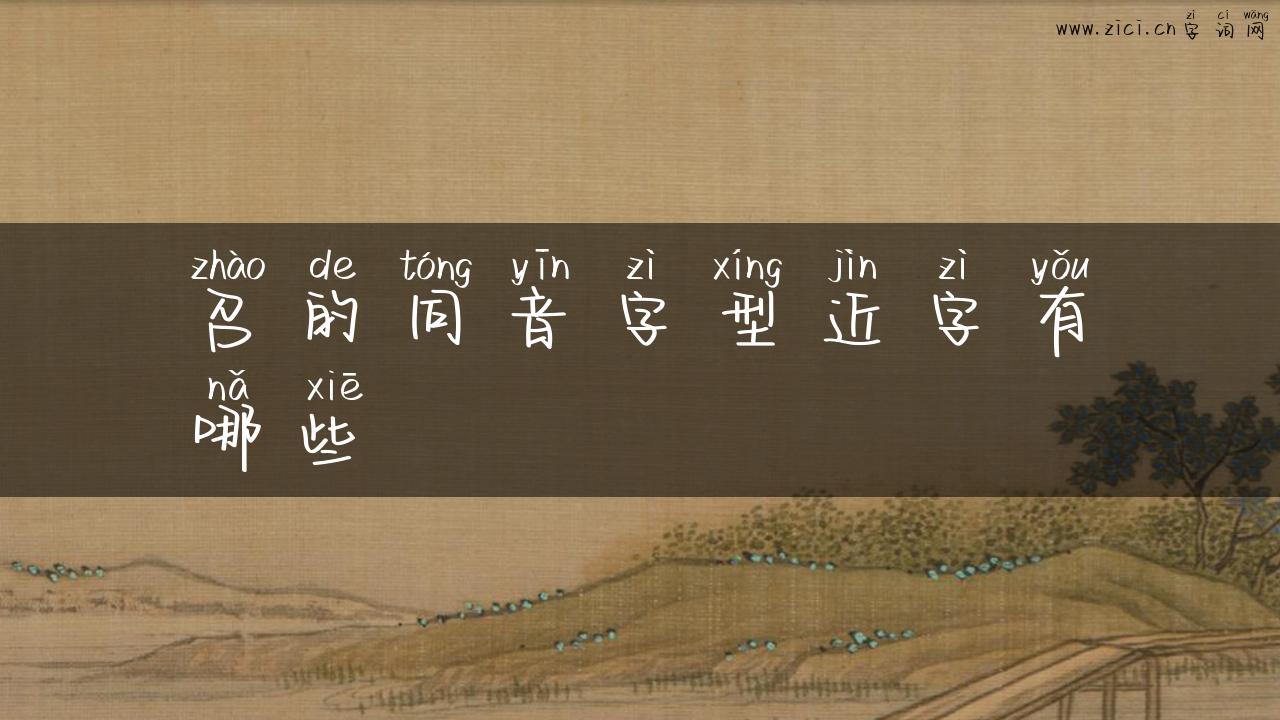 zì cí wǎng
www.zici.cn 字词网
zhào de tóng yīn zì xíng jìn zì yǒu
召的同音字型近字有
nǎ xiē
哪些